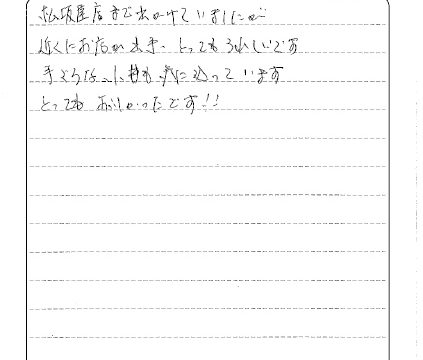 松坂屋店まで出かけていましたが
近くにお店が出来、とってもうれしいです
手ごろな、も気に入っています
とってもおいしかったです!!